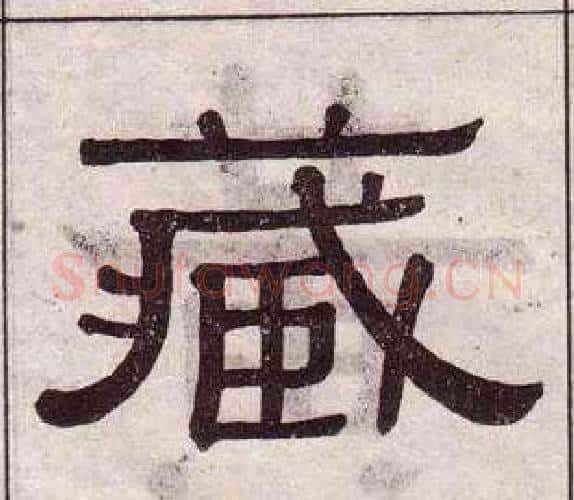 藏
Shufawang.CN